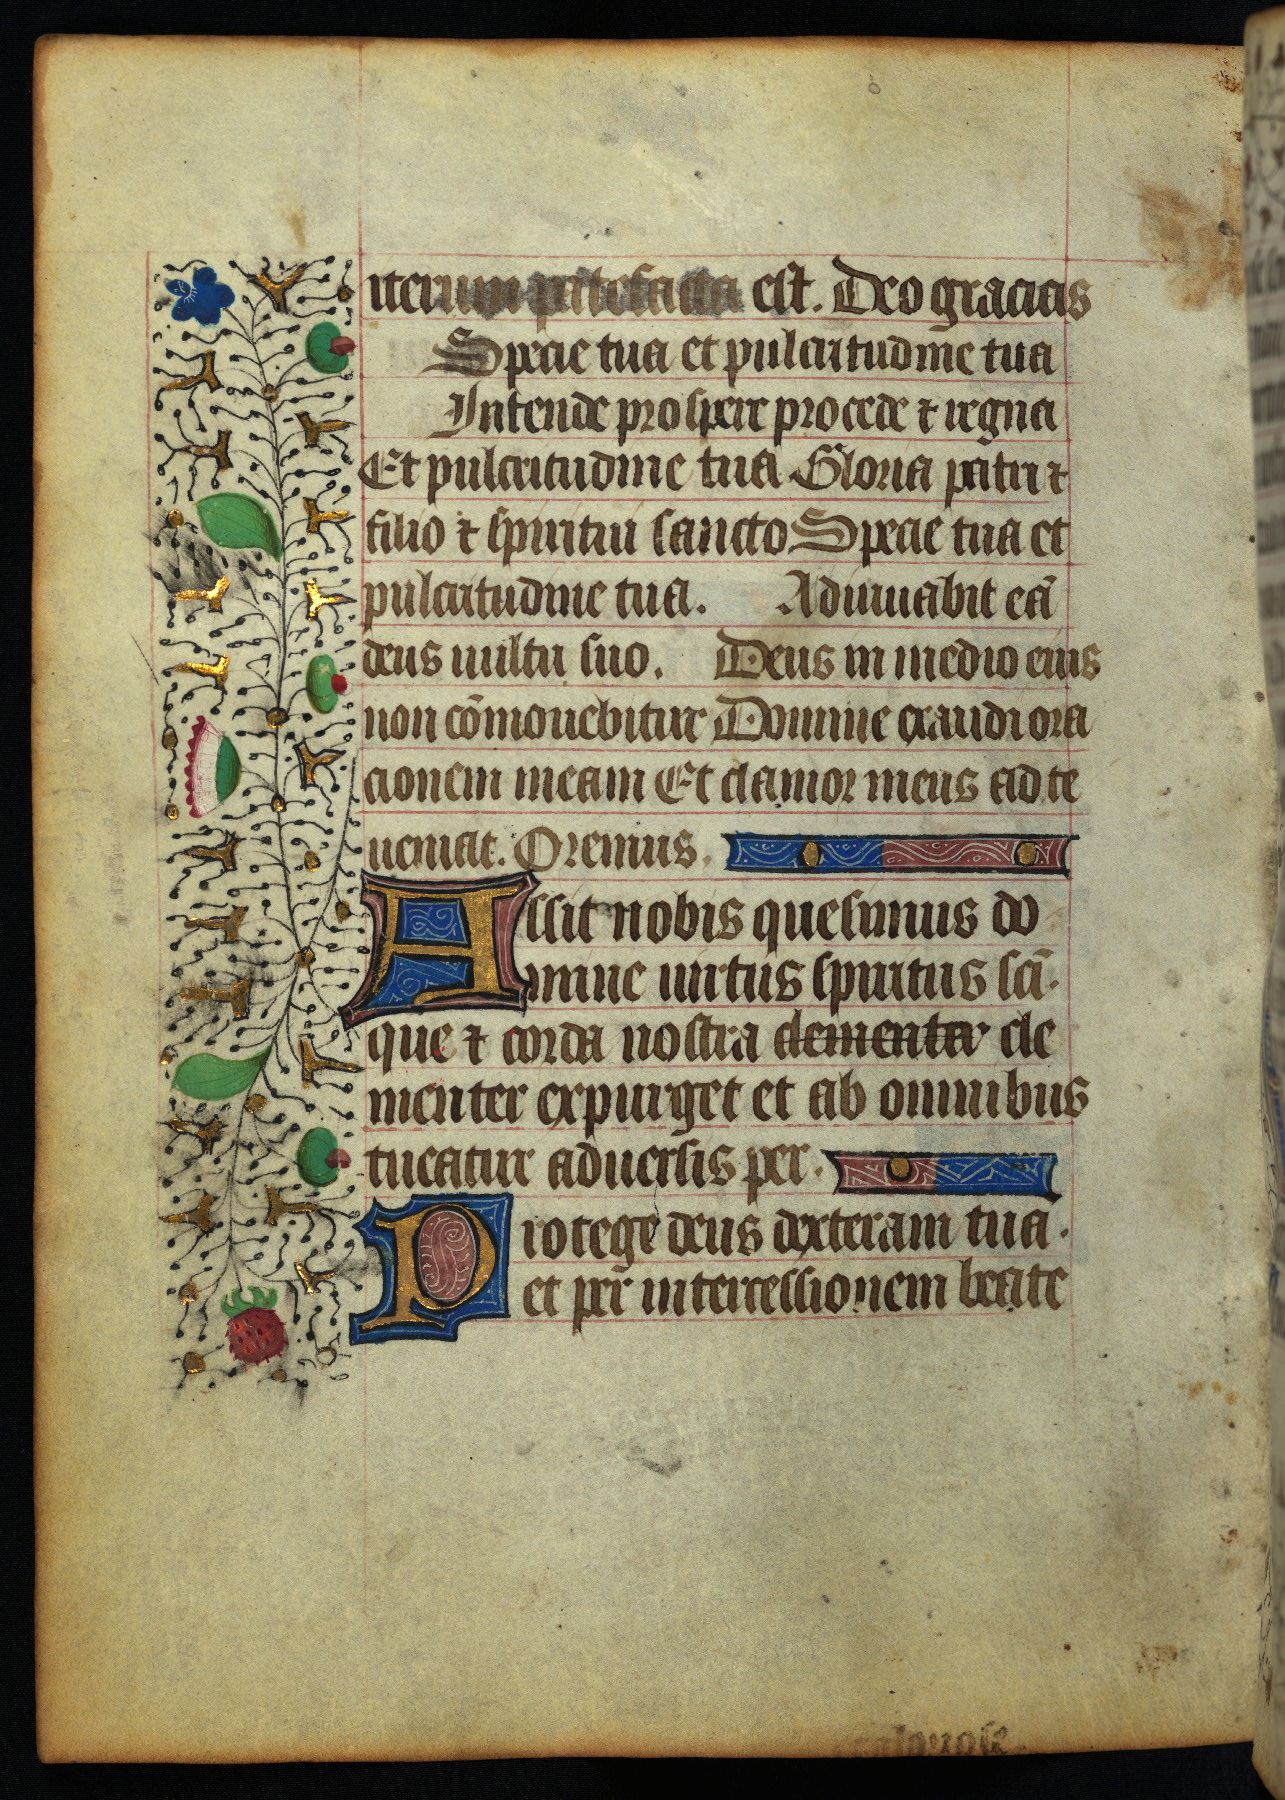 iterum patefacta est. Deo gracias
Specie tua et pulcritudine tua
Intende prospere procede ⁊ regna
Et pulcritudine tua Gloria patri ⁊
filio ⁊ spiritui sancto Specie tua et
pulcritudine tua. Adiuuabit eā
deus uultu suo. Deus in medio eius
non cōmouebitur Domine exaudi ora
cionem meam Et clamor meus ad te
ueniat. Oremus.
Assit nobis quesumus do
mine uirtus spiritus sci̅.
que ⁊ corda nostra clementer cle
menter expurget et ab omnibus
tueatur aduersis per.
Protege deus dexteram tua.
et per intercessionem beate